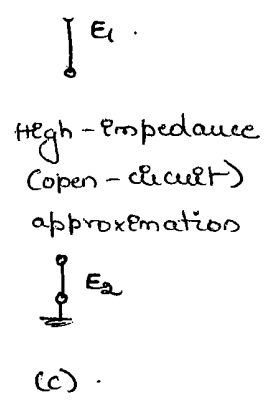 E1 .
High-impedance
(open-circuit)
approximation
E2
(c) .